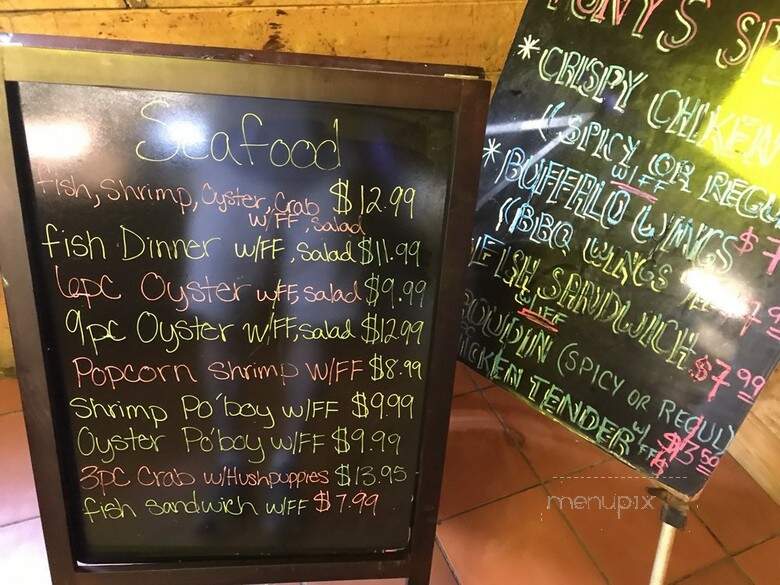 Seafood
fish, Shrimp, Oyster, Crab $12.99
w/FF, Salad
fish Dinner w/FF, Salad $11.99
6pc Oyster w/FF, Salad $9.99
9pc Oyster w/FF, Salad $12.99
Popcorn Shrimp w/FF $8.99
Shrimp Po'boy w/FF $9.99
Oyster Po'boy w/FF $9.99
3pc Crab w/Hushpuppies $13.95
fish sandwich w/FF $7.99
* CRISPY CHIKEN
(SPICY OR REGU
W/FF
* BUFFERLO WINGS $7
(BBQ WINGS
FISH SANDWICH $7.99
W/FF
BOUDIN (SPICY OR REGUL)
CHICKEN TENDER W/FF $3.50
menupix